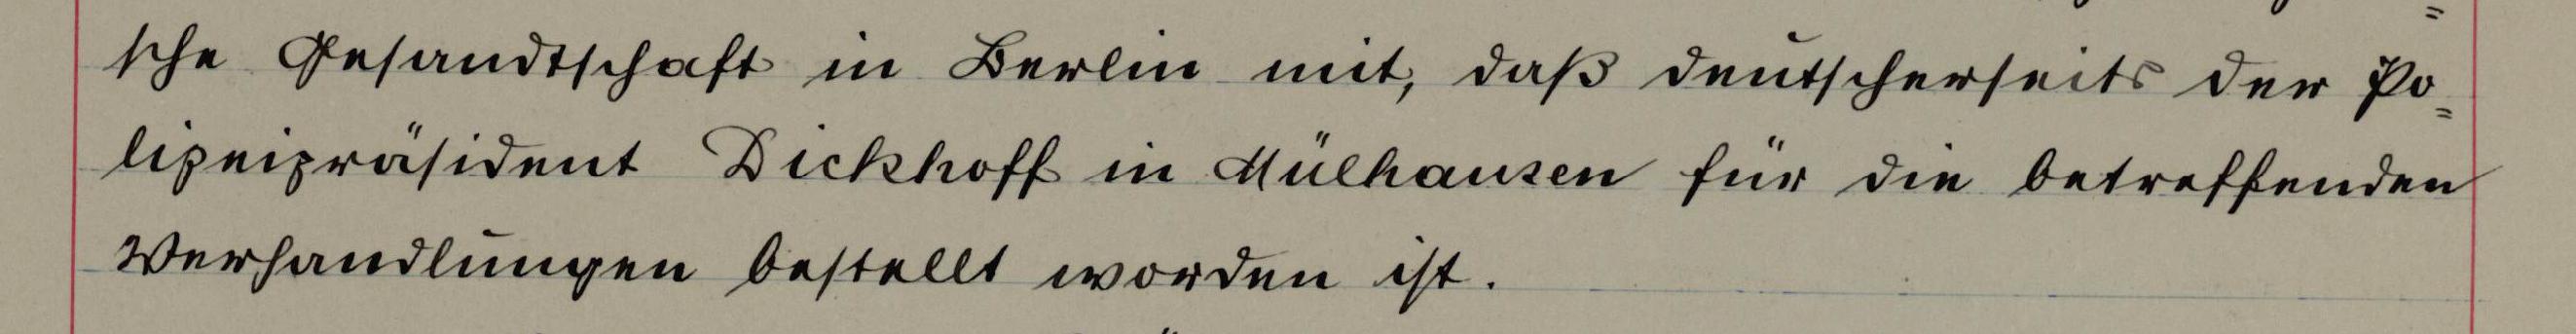 sche Gesandtschaft in Berlin mit, daß deutscherseits der Po=
lizeipräsident Dickhoff in Mülhausen für die betreffenden
Verhandlungen bestellt worden ist.